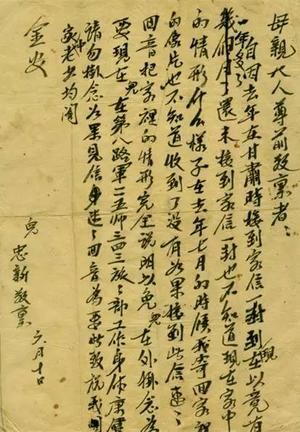 母親大人尊前敬稟者：
自因去年在甘肅時接到家信一封到現在以竟有
一年多
幾個月了還未接到家信一封也不知道現在家中
的情形什么樣子在去年七月的時候我寄回家裡
的像片也不知道收到了没有如果接到此信速速
回音把家裡的情形完全說明以免兒在外掛念為
要現在兒在第八路軍一一五師三四三旅旅部工作身体康健
請勿掛念如果見信速速回音為要此致祝我
家中老少均閤
金安
兒
忠新敬稟
六月十日